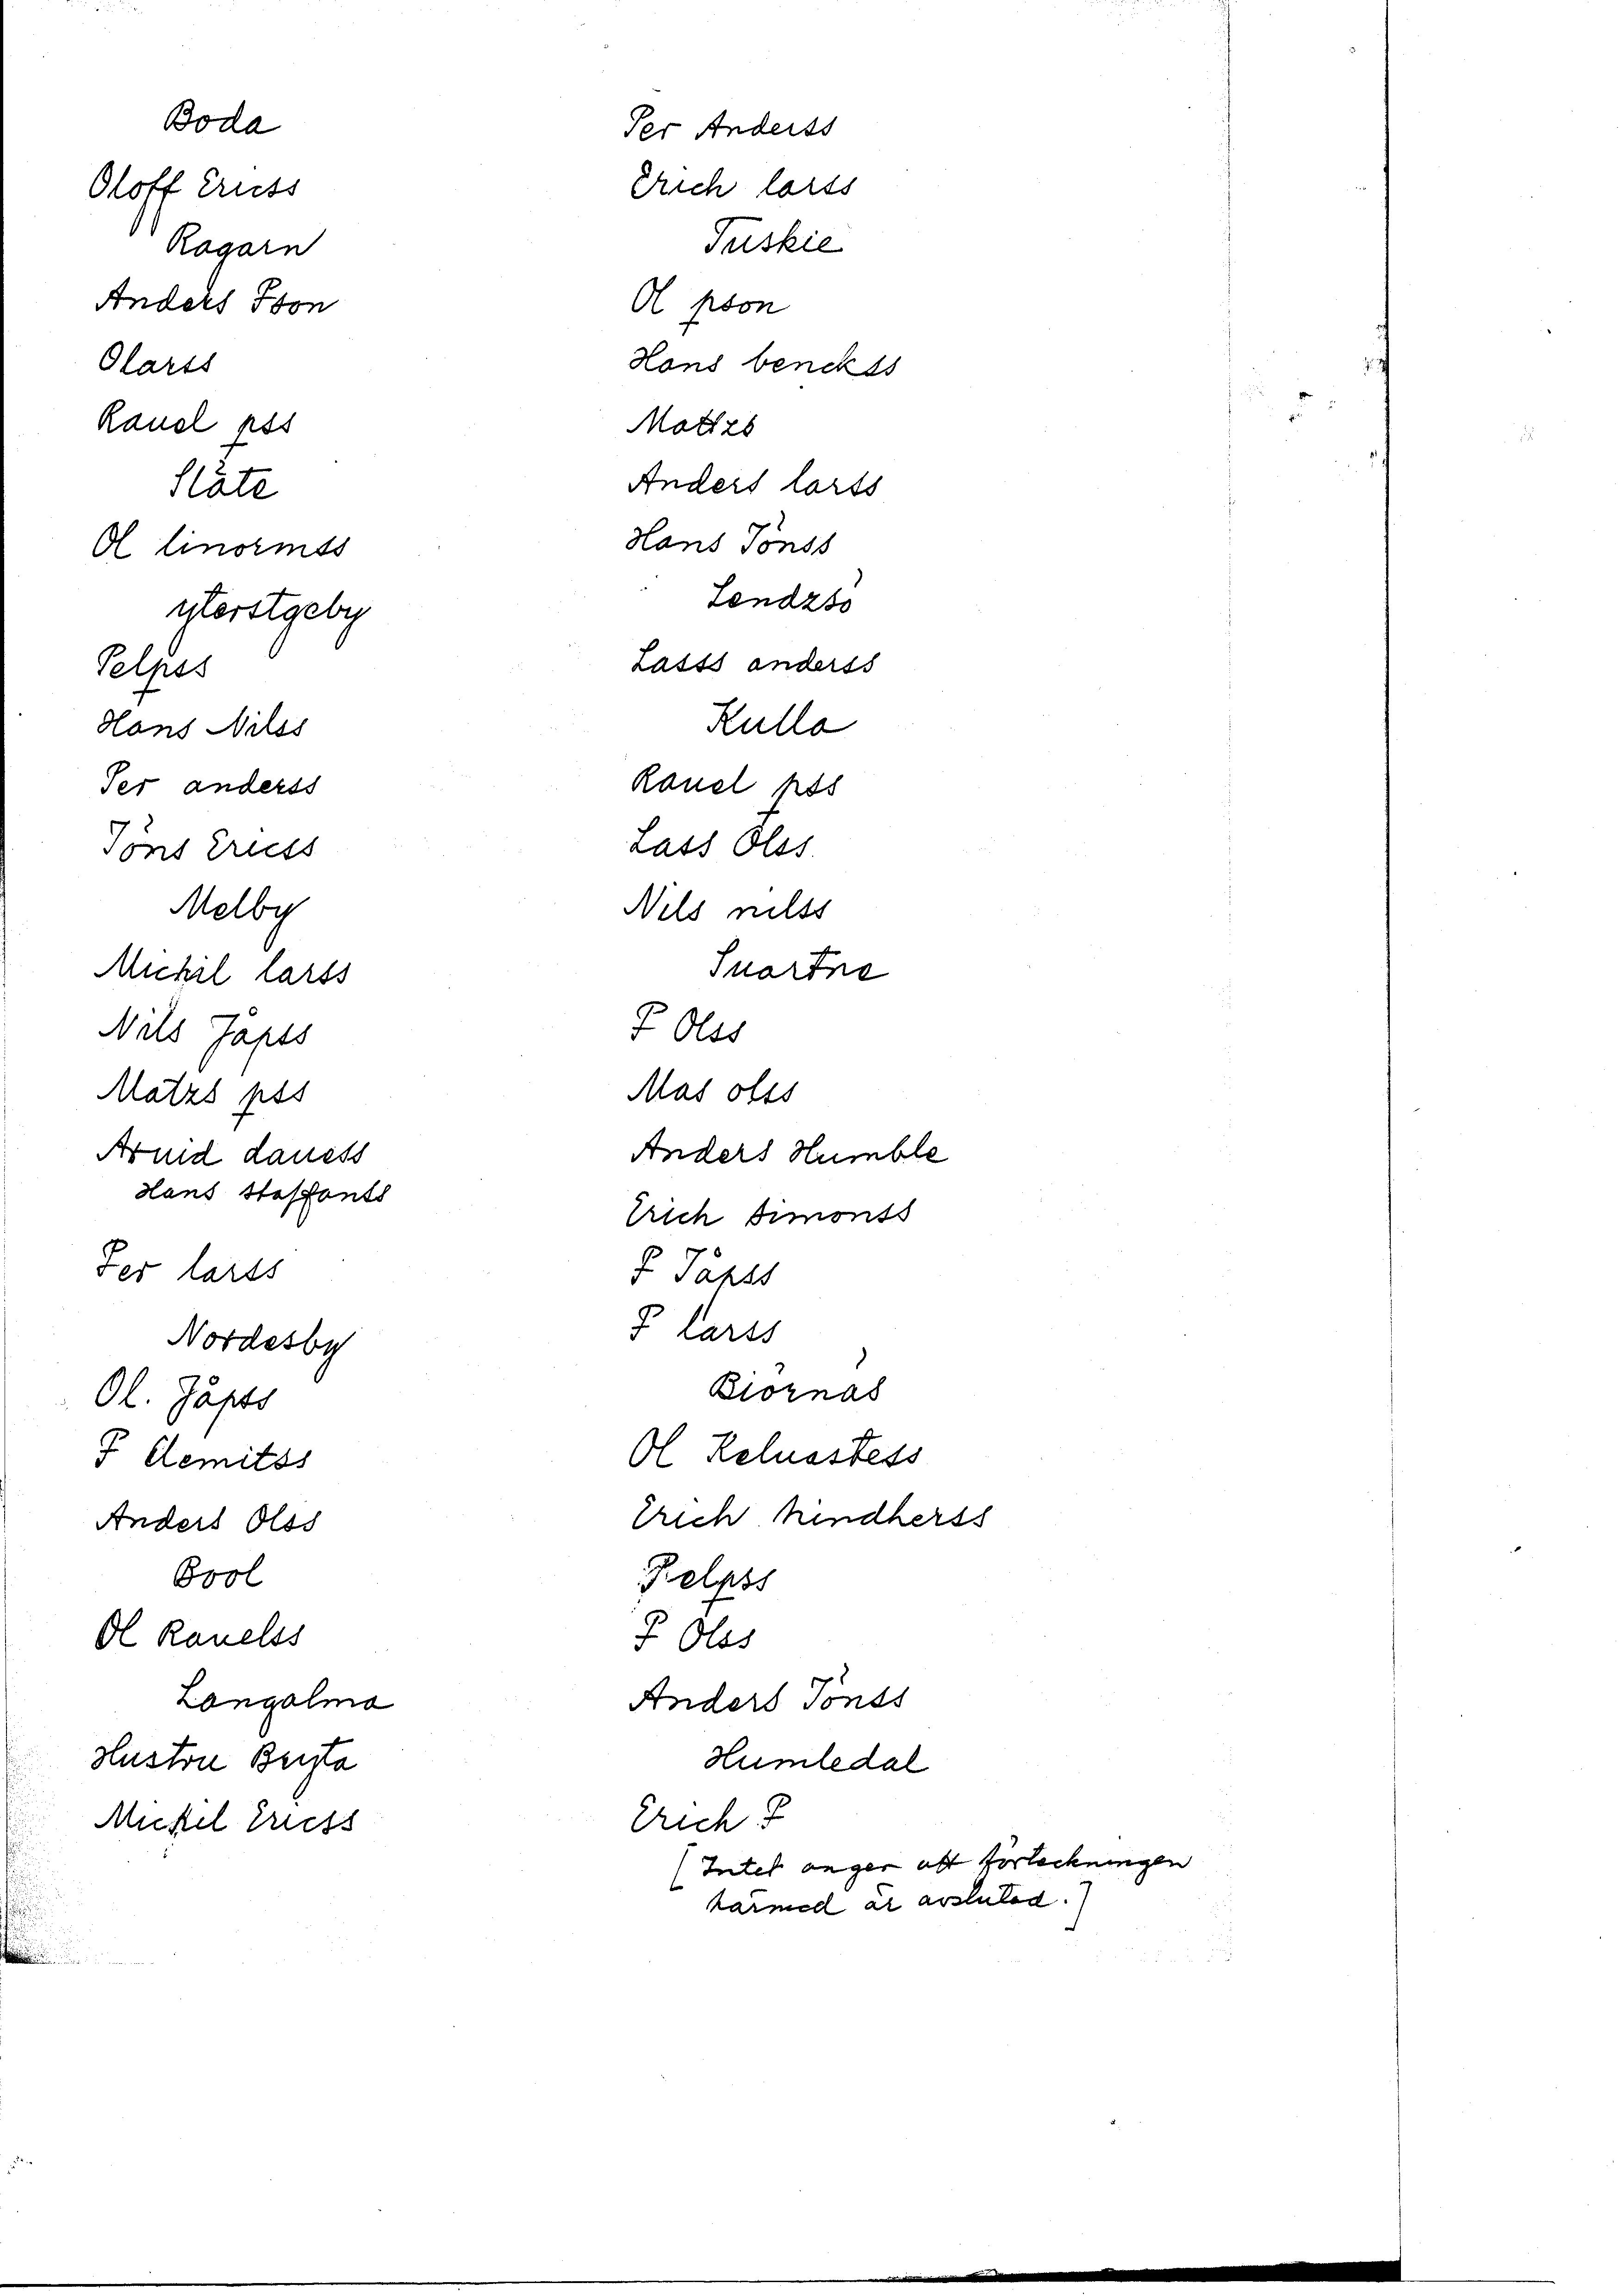 Boda
Oloff Ericss
Ragarn
Anders Pson
Olarss
Rauel pss
Släte
Ol linormss
yterstgeby
Pelpss
Hans Nilss
Per anderss
Jöns Ericss
Melby
Michil larss
Nils Jåpss
Matzs pss
Aruid dauess
Hans staffanss
Per larss
Nordesby
Ol. Jåpss
P Clemitss
Anders Olss
Bool
Ol Rauelss
Langalma
Hustru Bryta
Mickel Ericss
Per Anderss
Erich larss
Tuskie
Ol pson
Hans benckss
Mattzs
Anders larss
Hans Jönss
Sendzsö
Lasss anderss
Kulla
Rauel pss
Lass Olss
Nils nilss
Suartne
P Olss
Mas olss
Anders Humble
Erich Simonss
P Jåpss
P larss
Biörnas
Ol Keluastess
Erich hindherss
Pelpss
P Olss
Anders Jönss
Humledal
Erich P
(Intet anger att förteckningen
härmed är avslutad.)